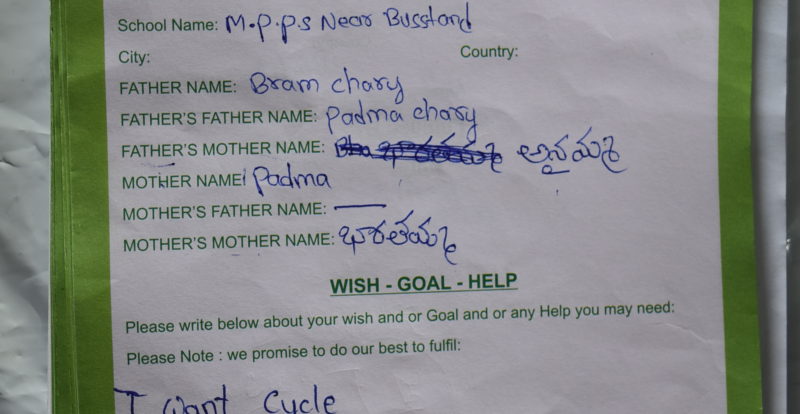 School Name: M.P.P.S Near Busstand
City: Country:
FATHER NAME: Bram chary
FATHER'S FATHER NAME: Padma chary
FATHER'S MOTHER NAME:
MOTHER NAME: Padma
MOTHER'S FATHER NAME: —
MOTHER'S MOTHER NAME: భారతమ్మ
WISH - GOAL - HELP
Please write below about your wish and or Goal and or any Help you may need:
Please Note : we promise to do our best to fulfil:
I want cycle